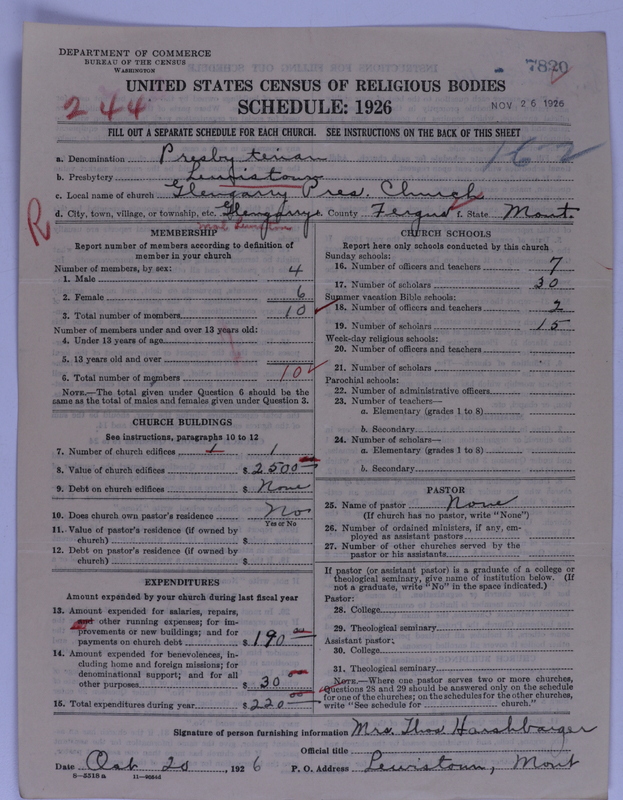 DEPARTMENT OF COMMERCE
BUREAU OF THE CENSUS
WASHINGTON
7820
UNITED STATES CENSUS OF RELIGIOUS BODIES
244
SCHEDULE: 1926
NOV 26 1926
FILL OUT A SEPARATE SCHEDULE FOR EACH CHURCH. SEE INSTRUCTIONS ON THE BACK OF THIS SHEET
162
a. Denomination Presbyterian
b. Presbytery Lewistown
c. Local name of church Glengarry Pres. Church
d. City, town, village, or township, etc. Glengarry e. County Fergus f. State Mont.
R
MEMBERSHIP
Report number of members according to definition of member in your church
Number of members, by sex:
1. Male 4
2. Female 6
3. Total number of members 10
Number of members under and over 13 years old:
4. Under 13 years of age
5. 13 years old and over
6. Total number of members 10
NOTE.—The total given under Question 6 should be the same as the total of males and females given under Question 3.
CHURCH BUILDINGS
See instructions, paragraphs 10 to 12
7. Number of church edifices 1 1
8. Value of church edifices $ 2500
9. Debt on church edifices $ None
10. Does church own pastor's residence No
Yes or No
11. Value of pastor's residence (if owned by church) $
12. Debt on pastor's residence (if owned by church) $
EXPENDITURES
Amount expended by your church during last fiscal year
13. Amount expended for salaries, repairs, and other running expenses; for improvements or new buildings; and for payments on church debt $ 190
14. Amount expended for benevolences, including home and foreign missions; for denominational support; and for all other purposes $ 30
15. Total expenditures during year $ 220
CHURCH SCHOOLS
Report here only schools conducted by this church
Sunday schools:
16. Number of officers and teachers 7
17. Number of scholars 30
Summer vacation Bible schools:
18. Number of officers and teachers 2
19. Number of scholars 15
Week-day religious schools:
20. Number of officers and teachers
21. Number of scholars
Parochial schools:
22. Number of administrative officers
23. Number of teachers—
a. Elementary (grades 1 to 8)
b. Secondary
24. Number of scholars—
a. Elementary (grades 1 to 8)
b. Secondary
PASTOR
25. Name of pastor None
(If church has no pastor, write "None")
26. Number of ordained ministers, if any, employed as assistant pastors
27. Number of other churches served by the pastor or his assistants
If pastor (or assistant pastor) is a graduate of a college or theological seminary, give name of institution below. (If not a graduate, write "No" in the space indicated.)
Pastor:
28. College
29. Theological seminary
Assistant pastor:
30. College
31. Theological seminary
NOTE.—Where one pastor serves two or more churches, Questions 28 and 29 should be answered only on the schedule for one of the churches; on the schedules for the other churches, write "See schedule for church."
Signature of person furnishing information Mrs. Thos. Harshbarger
Official title
Date 20, 1926 P. O. Address Lewistown, Mont
8—3318 a